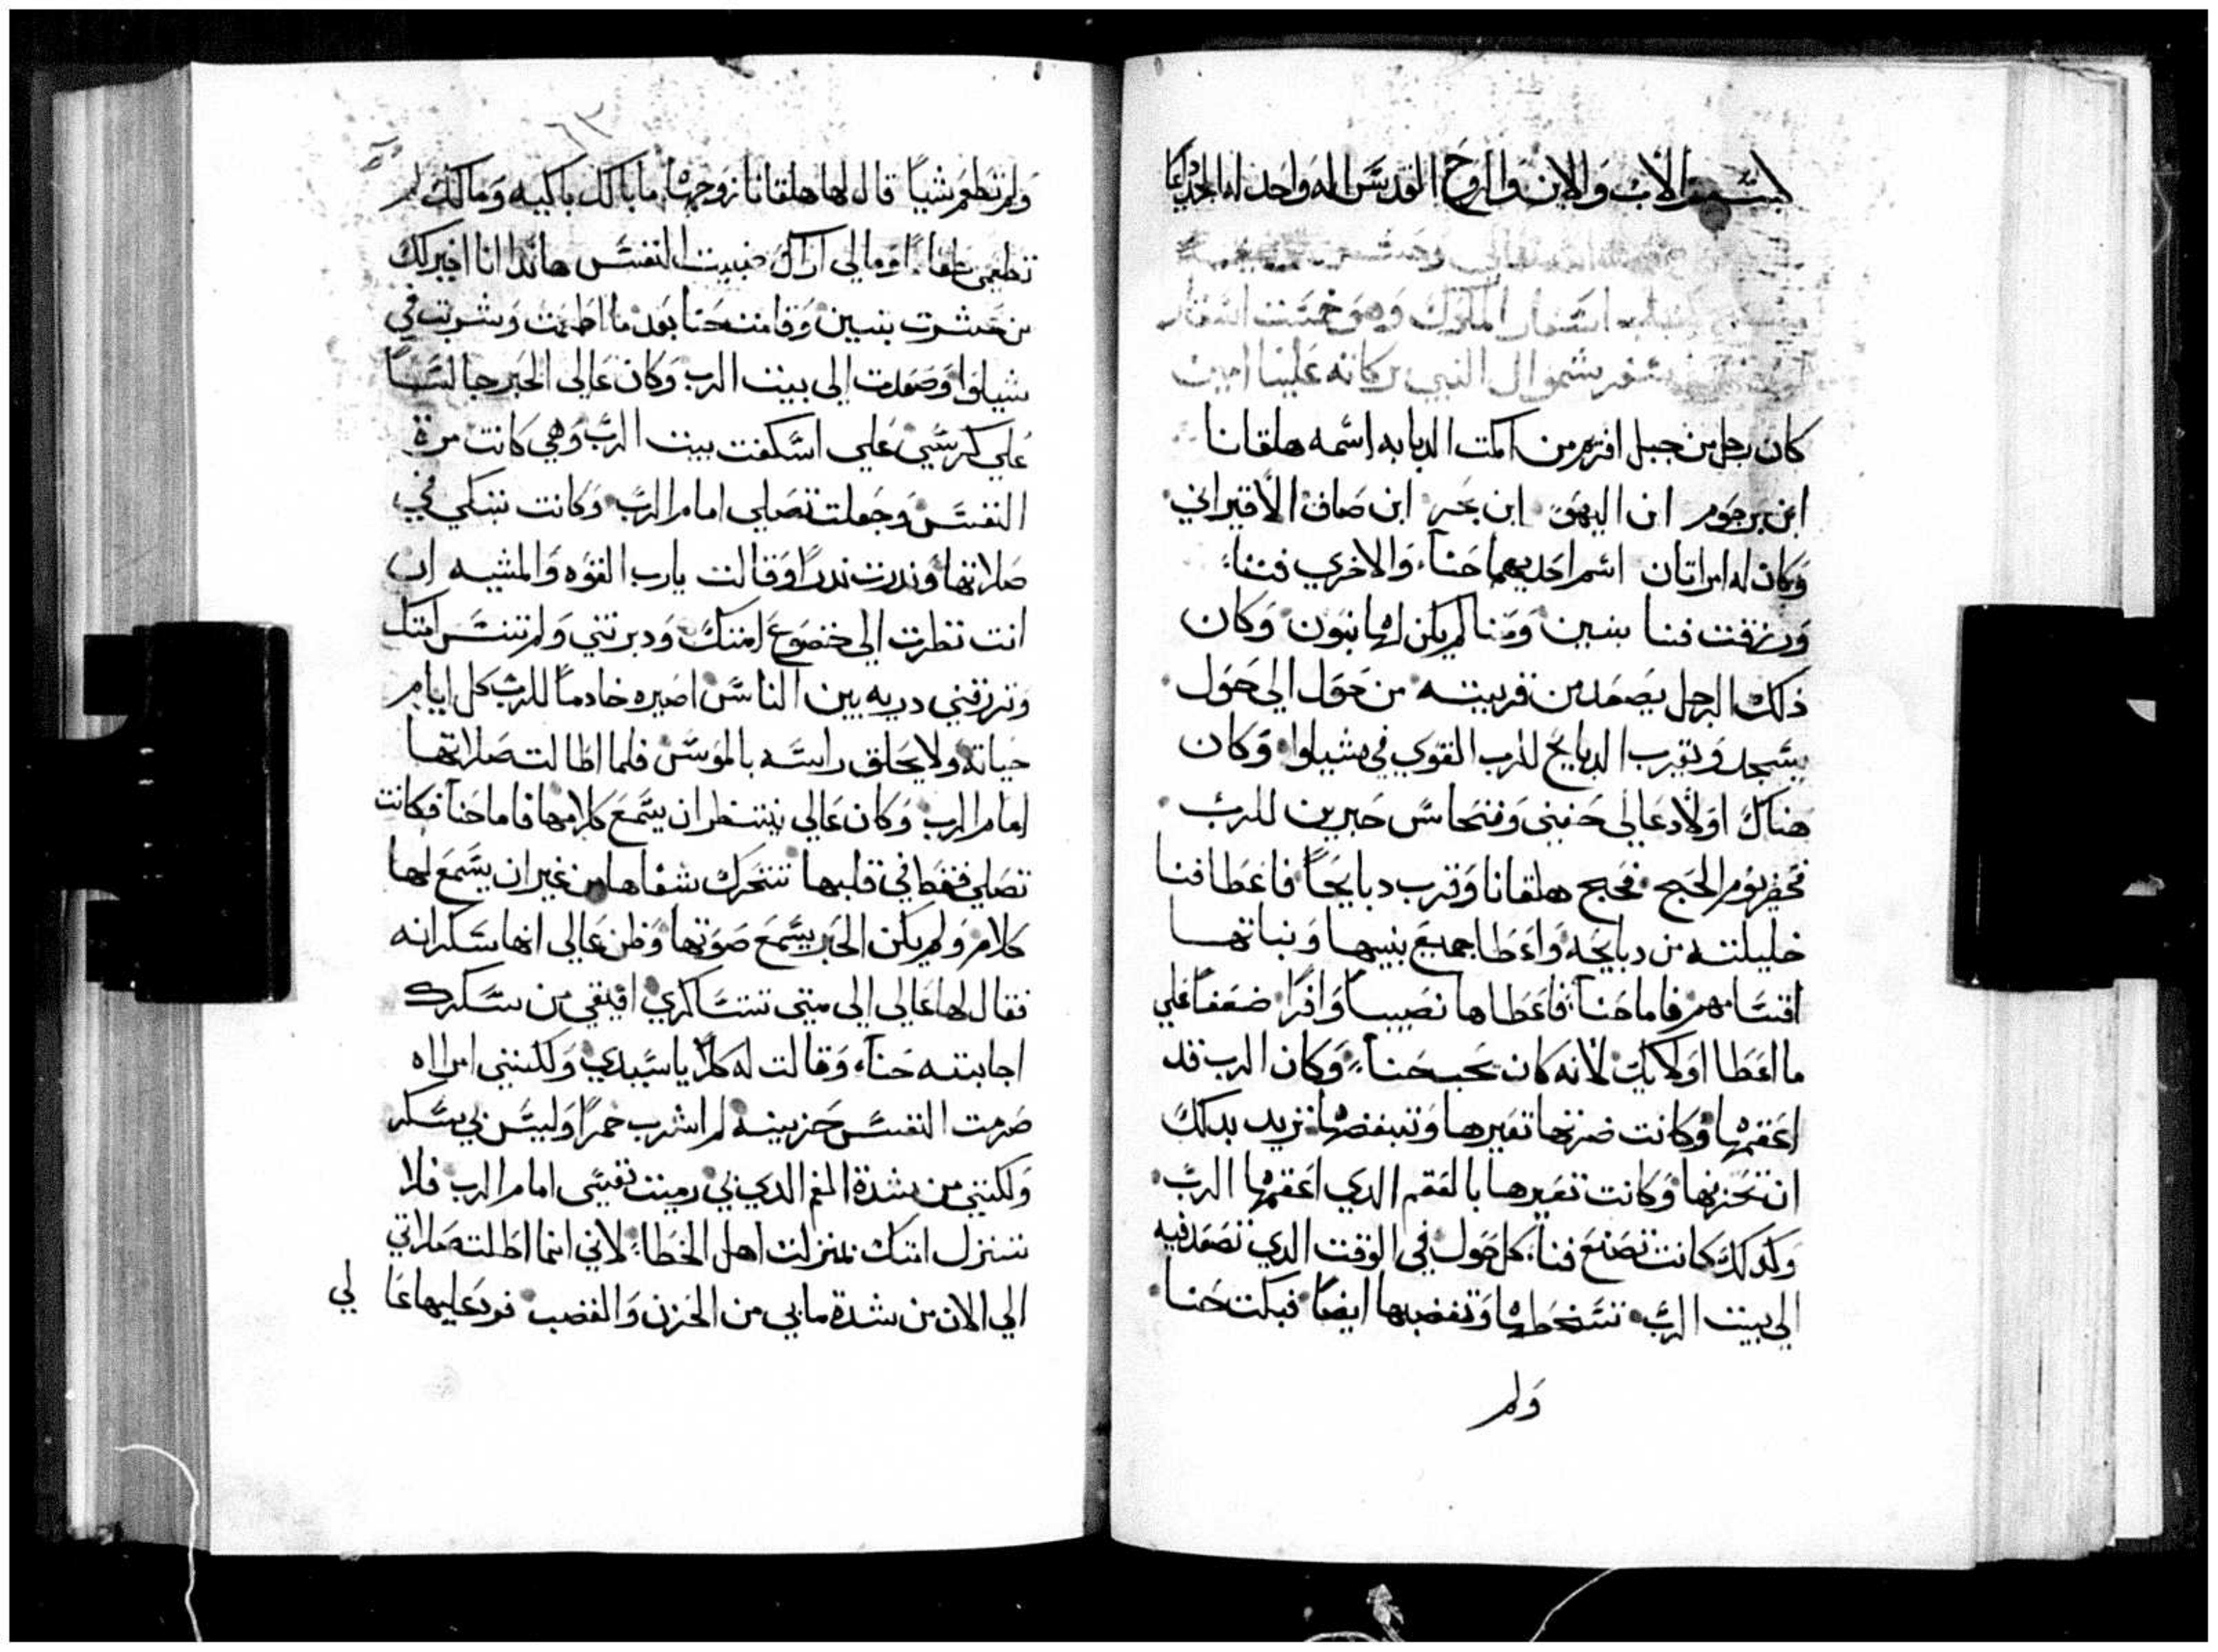 بسم الاب والابن والروح القدس اله واحد له المجد دايما
اسفار الملوك وهو خمست اسفار
سفر شموال النبي بركاته علينا امين
كان رجل من جبل افريم من اكمت الديابه اسمه هلقانا
ابن يرحوم ابن اليهو ابن بحر ابن صاف الافيراتي
وكان له امراتان اسم احديهما حنا والاخري فننا
ورزقت فننا بنين وحنا لم يكن لها بنون وكان
ذلك الرجل يصعد من قريته من حول الي حول
يسجد ويقرب الدبايح للرب القوي في شيلوا وكان
هناك اولاد عالي حفني وفنحاس حبرين للرب
فحضر يوم الحج فحج هلقانا وقرب دبايحاً فاعطا فننا
خليلته من دبايحه واعطا جميع بنيها وبناتها
اقسامهم فاما حنا فاعطاها نصيباً وافراً ضعفاً علي
ما اعطا اولايك لانه كان يحب حنا وكان الرب قد
اعقمها وكانت ضرتها تعيرها وتبغضها تريد بدلك
ان تحزنها وكانت تعيرها بالعقم الدي اعقمها الرب
وكدلك كانت تصنع فننا كل حول في الوقت الدي تصعد فيه
الي بيت الرب تسخطها وتغضبها ايضاً فبكت حنا
ولم
ولم تطعم شياً قال لها هلقانا زوجها ما بالك باكيه ومالك لم
تطعمي طعاماً ومالي اراك خبيت النفس هاندا انا اخير لك
من عشرت بنين وقامت حنا بعد ما اطعمت وشربت في
شيلوا وصعدت الي بيت الرب وكان عالي الحبر جالساً
علي كرسي علي اسكفت بيت الرب وهي كانت مرة
النفس وجعلت تصلي امام الرب وكانت تبكي في
صلاتها وندرت ندراً وقالت يارب القوه والمشيه ان
انت نظرت الي خضوع امتك ودبرتني ولم تنس امتك
وترزقني دريه بين الناس اصيره خادماً للرب كل ايام
حياته ولا يحلق راسه بالموس فلما اطالت صلاتها
امام الرب وكان عالي ينتظر ان يسمع كلامها فاما حنا فكانت
تصلي فقط في قلبها تتحرك شفاها من غير ان يسمع لها
كلام ولم يكن الحبر يسمع صوتها وظن عالي انها سكرانه
فقال لها عالي الي متي تتساكري افيقي من سكرك
اجابته حنا وقالت له كلا يا سيدي ولكنني امراه
صرمت النفس حزينه لم اشرب خمراً وليس بي سكر
ولكنني من شدة الغم الدي بي رميت نفسي امام الرب فلا
تنزل امتك بمنزلت اهل الخطا لاني انما اطلت صلاتي
الي الان من شدة ما بي من الحزن والغضب فرد عليها عالي